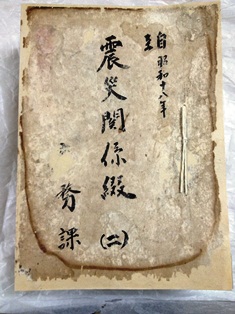 自昭和十八年
至
震災関係綴
(二)
務課